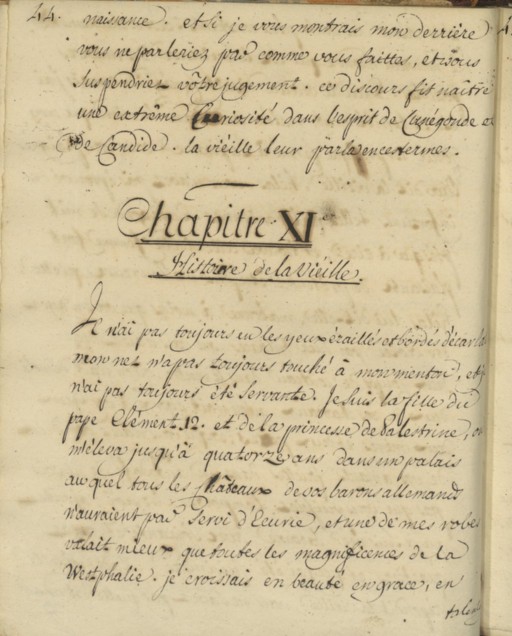 44. naissance. et si je vous montrais mon derrière
vous ne parleriez pas comme vous faittes, et vous
suspendriez vôtre jugement. ce discours fit naître
une extrême Curiosité dans l'esprit de Cunégonde et
de Candide. la vieille leur parla en ces termes.
Chapitre XIe
Histoire de la Vieille.
Je n'ai pas toujours eu les yeux éraillés et bordés d'écarla
mon nez n'a pas toujours touché à mon menton, et j
n'ai pas toujours été servante. Je suis la fille du
pape Clément 12. et de la princesse de Palestrine, on
m'éleva jusqu'à quatorze ans dans un palais
au quel tous les Châteaux de vos barons allemands
n'auraient pas servi d'Ecurie, et une de mes robes
valait mieux que toutes les magnificences de la
Westphalie. je croissais en beauté en grace, en